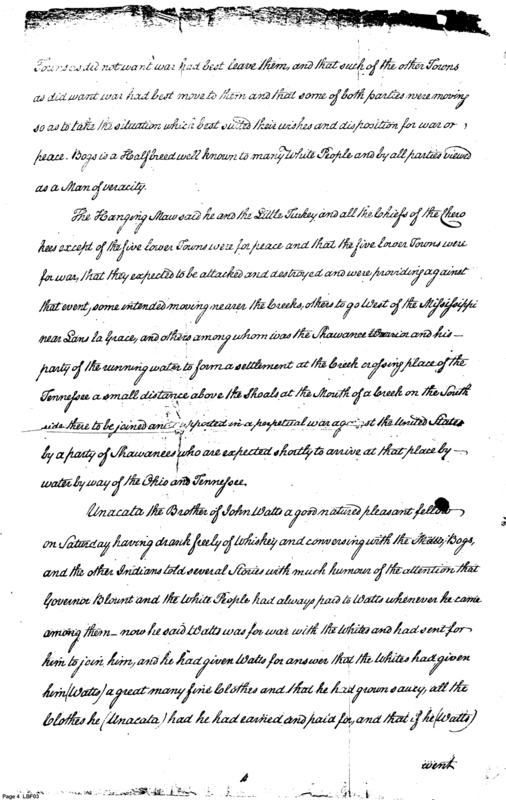 Towns as did not want war had best leave them, and that such of the other Towns
as did want war had best move to them and that some of both parties were moving
so as to take the situation which best suited their wishes and disposition for war or
peace. Bogs is a Half breed well known to many White People and by all parties viewed
as a Man of veracity.
The Hanging Maw said he and the Little Turkey and all the Chiefs of the Chero
kees except of the five lower Towns were for peace and that the five lower Towns were
for war, that they expected to be attacked and destroyed and were providing against
that event, some intended moving nearer the Creeks, others to go West of the Mississippi
near Lans la Grace, and others among whom was the Shawanee Warrior and his
party of the running water to form a settlement at the Creek crossing place of the
Tennessee a small distance above the Shoals at the Mouth of a Creek on the South
side there to be joined and supported in a perpetual war against the United States
by a party of Shawanees who are expected shortly to arrive at that place by
water by way of the Ohio and Tennessee.
Unacata the Brother of John Watts a good natured pleasant fellow
on Saturday having drank freely of Whiskey and conversing with the Maw, Bogs,
and the other Indians told several Stories with much humour of the attention that
Governor Blount and the White People had always paid to Watts whenever he came
among them – now he said Watts was for war with the Whites and had sent for
him to join him, and he had given Watts for answer that the Whites had given
him (Watts) a great many fine Clothes and that he had grown saucy, all the
Clothes he (Unacata) had he had earned and paid for, and that if he (Watts)
went
Page 4 LBF03